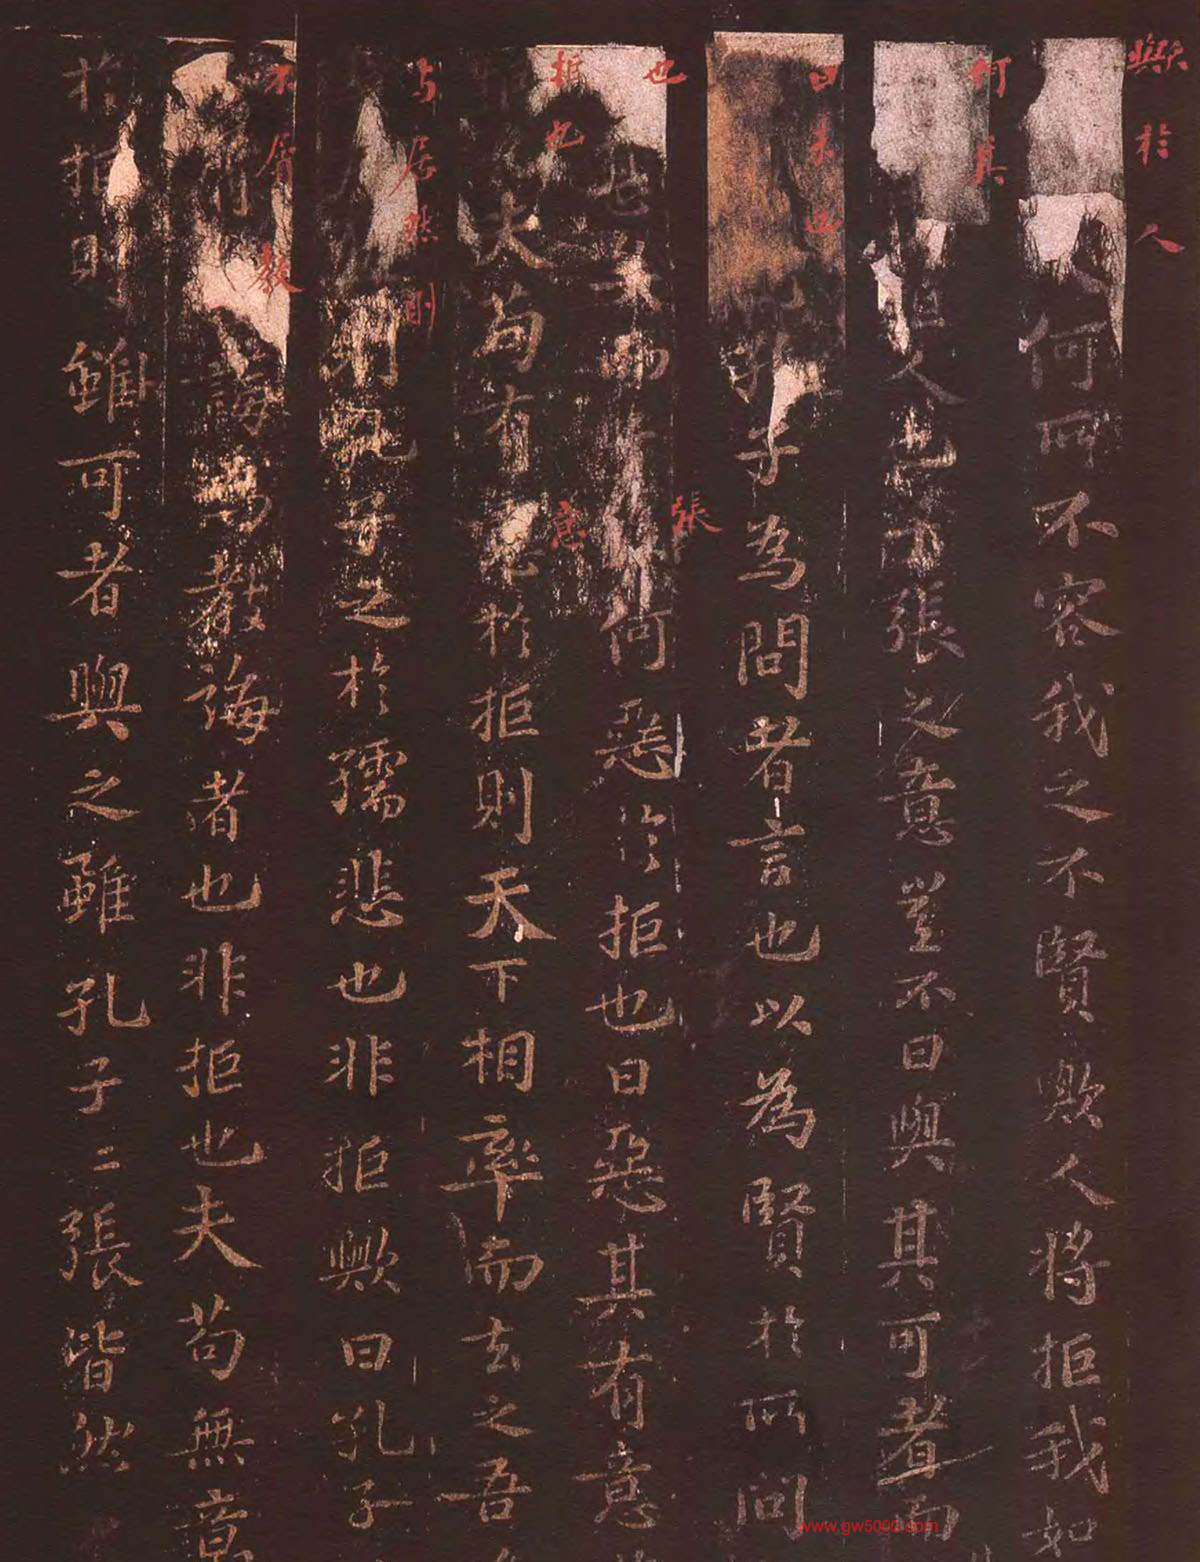 與於人
何所不容我之不賢歟人將拒我如
何其
人也子張之意豈不曰與其可者而
曰未也
孔子為問者言也以為賢於所問
也
張
者也然而何惡於拒也曰惡其有意
拒也
意
夫苟有意於拒則天下相率而去之吾
與居然則
則孔子之於孺悲也非拒歟曰孔子
不屑教
誨為教誨者也非拒也夫苟無意
於拒則雖可者與之雖孔子二張皆然
www.gw5000.com